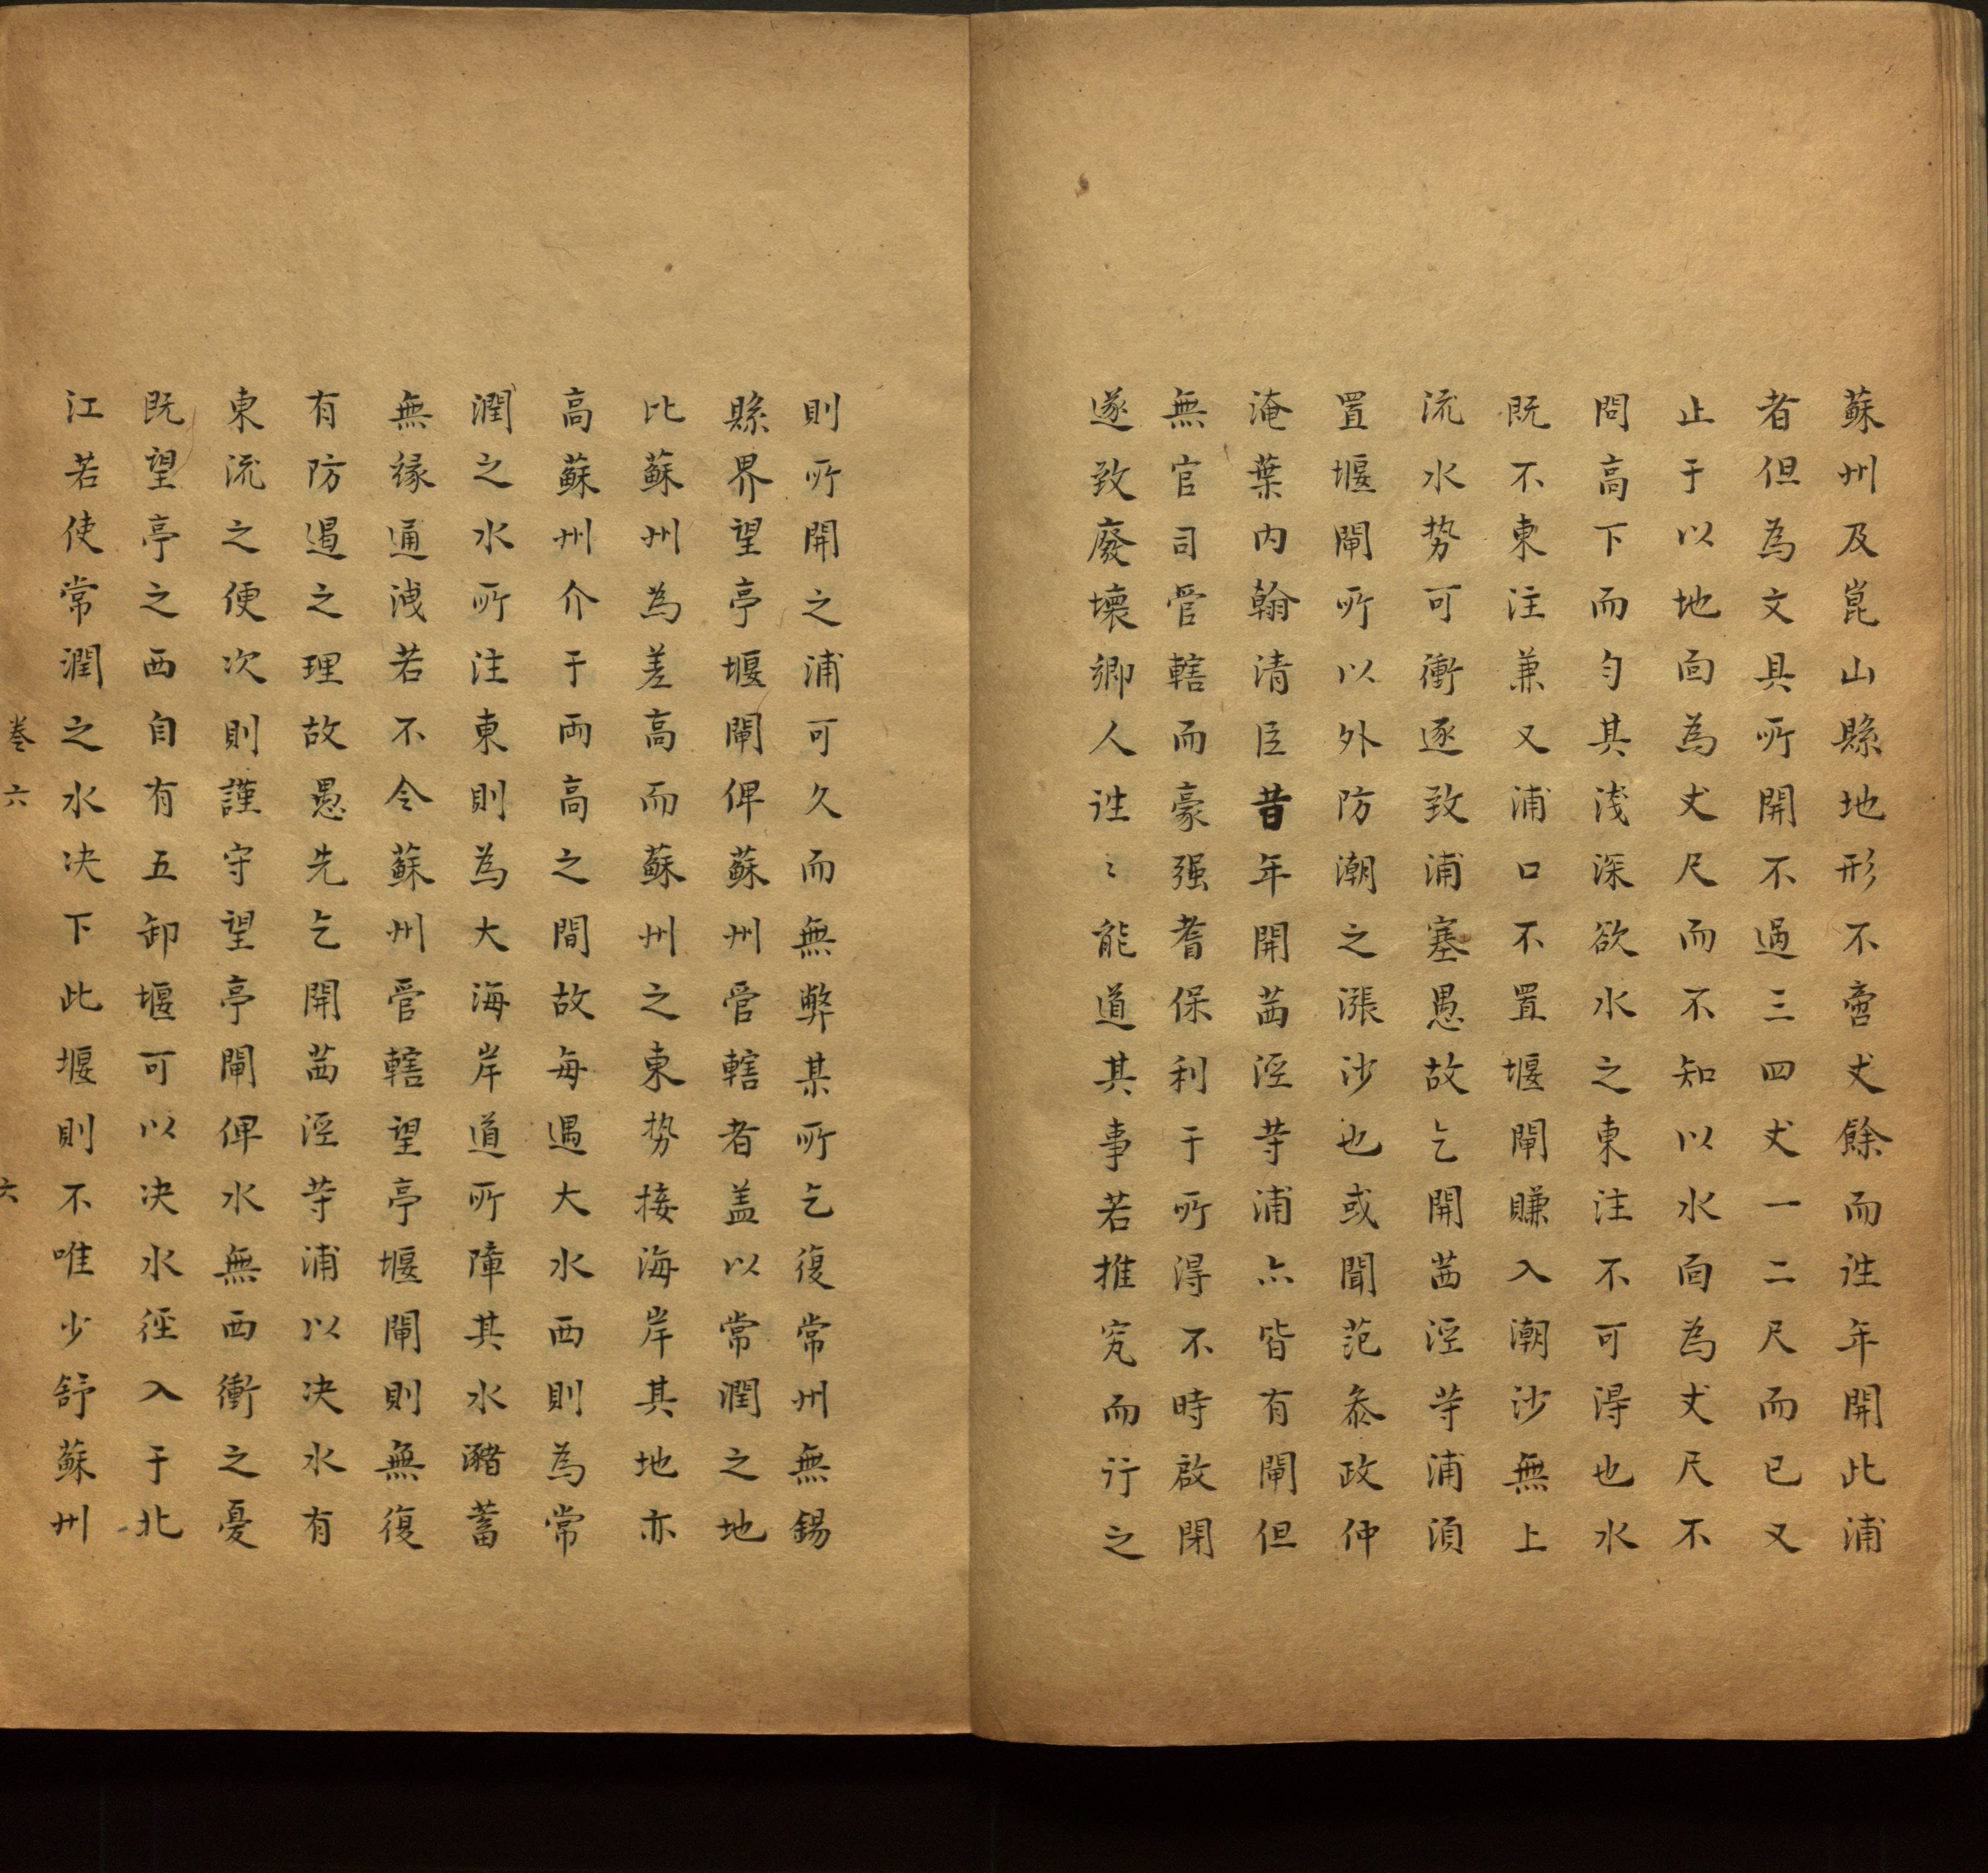 蘇州及崑山縣地形不啻丈餘而往年開此浦
者但為文具所開不過三四丈一二尺而已又
止于以地面為丈尺而不知以水面為丈尺不
問高下而勻其淺深欲水之東注不可得也水
既不東注兼又浦口不置堰閘賺入潮沙無上
流水势可衝逐致浦塞愚故乞開茜涇等浦須
置堰閘所以外防潮之漲沙也或聞范叅政仲
淹葉內翰清臣昔年開茜涇等浦亦皆有閘但
無官司管轄而豪强耆保利于所得不時啟閉
遂致廢壞鄉人往〻能道其事若推究而行之
則所開之浦可久而無弊某所乞復常州無錫
縣界望亭堰閘俾蘇州管轄者盖以常潤之地
比蘇州為差高而蘇州之東势接海岸其地亦
高蘇州介于兩高之間故每遇大水西則為常
潤之水所注東則為大海岸道所障其水瀦蓄
無緣通洩若不令蘇州管轄望亭堰閘則無復
有防遏之理故愚先乞開茜涇等浦以决水有
東流之便次則謹守望亭閘俾水無西衝之憂
既望亭之西自有五卸堰可以决水徑入于北
江若使常潤之水决下此堰則不唯少舒蘇州
卷六 六